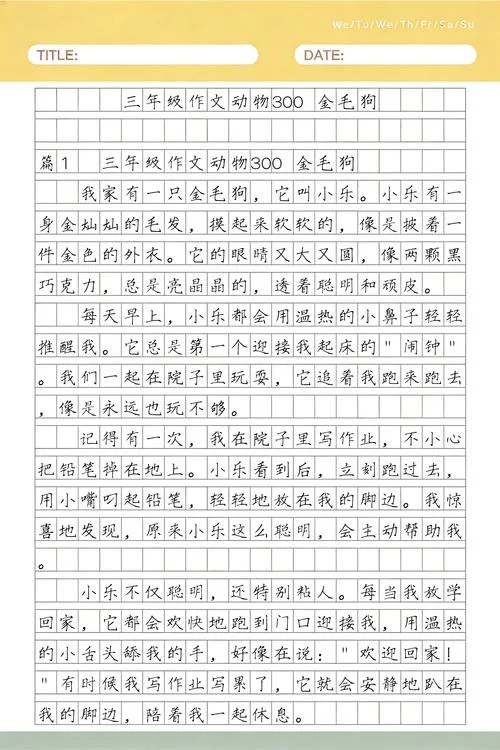 We/Tu/We/Th/Fr/Sa/Su
TITLE:
DATE:
三年级作文动物300 金毛狗
篇1 三年级作文动物300 金毛狗
我家有一只金毛狗，它叫小乐。小乐有一
身金灿灿的毛发，摸起来软软的，像是披着一
件金色的外衣。它的眼睛又大又圆，像两颗黑
巧克力，总是亮晶晶的，透着聪明和顽皮。
每天早上，小乐都会用温热的小鼻子轻轻
推醒我。它总是第一个迎接我起床的"闹钟"
。我们一起在院子里玩耍，它追着我跑来跑去
，像是永远也玩不够。
记得有一次，我在院子里写作业，不小心
把铅笔掉在地上。小乐看到后，立刻跑过去，
用小嘴叼起铅笔，轻轻地放在我的脚边。我惊
喜地发现，原来小乐这么聪明，会主动帮助我
。
小乐不仅聪明，还特别粘人。每当我放学
回家，它都会欢快地跑到门口迎接我，用温热
的小舌头舔我的手，好像在说："欢迎回家！
"有时候我写作业写累了，它就会安静地趴在
我的脚边，陪着我一起休息。